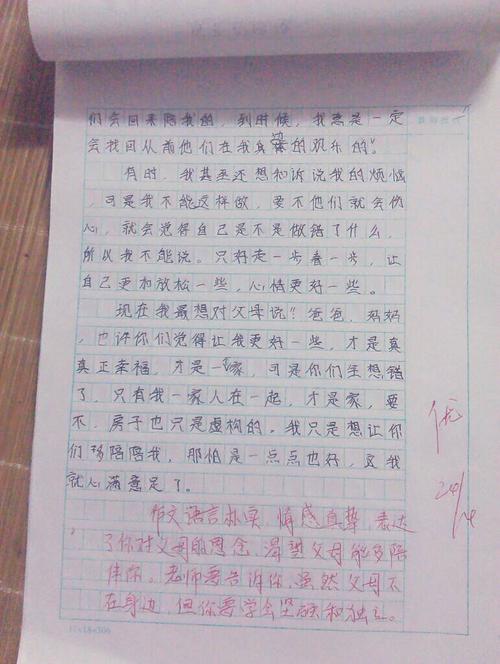 们会回来陪我的，到时候，我想是一定
会找回从前他们在我身边的欢乐的"。
有时，我甚至还想和诉说我的烦恼
，可是我不能这样做，要不他们就会伤
心，就会觉得自己是不是做错了什么，
所以我不能说。只好走一步看一步，让
自己更加放松一些，心情更好一些。
现在我最想对父母说："爸爸，妈妈
，也许你们觉得让我更好一些，才是真
真正幸福，才是一家，可是你们全想错
了，只有我一家人在一起，才是家，要
不，房子也只是虚构的。我只是想让你
们多陪陪我，那怕是一点点也好，这我
就心满意足了。
优
24/
作文语言朴实，情感真挚，表达
了你对父母的思念，渴望父母能多陪
伴你。老师要告诉你，虽然父母不
在身边，但你要学会坚强和独立。